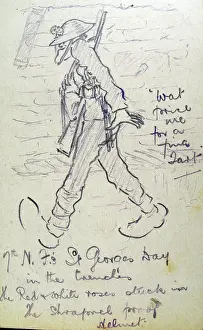 'Wat
price
me
for a
fina
Tart'
7th N. F's St Georges Day
in the trenches
the Red & White roses stuck in
the Shrapnel proof
Helmet.